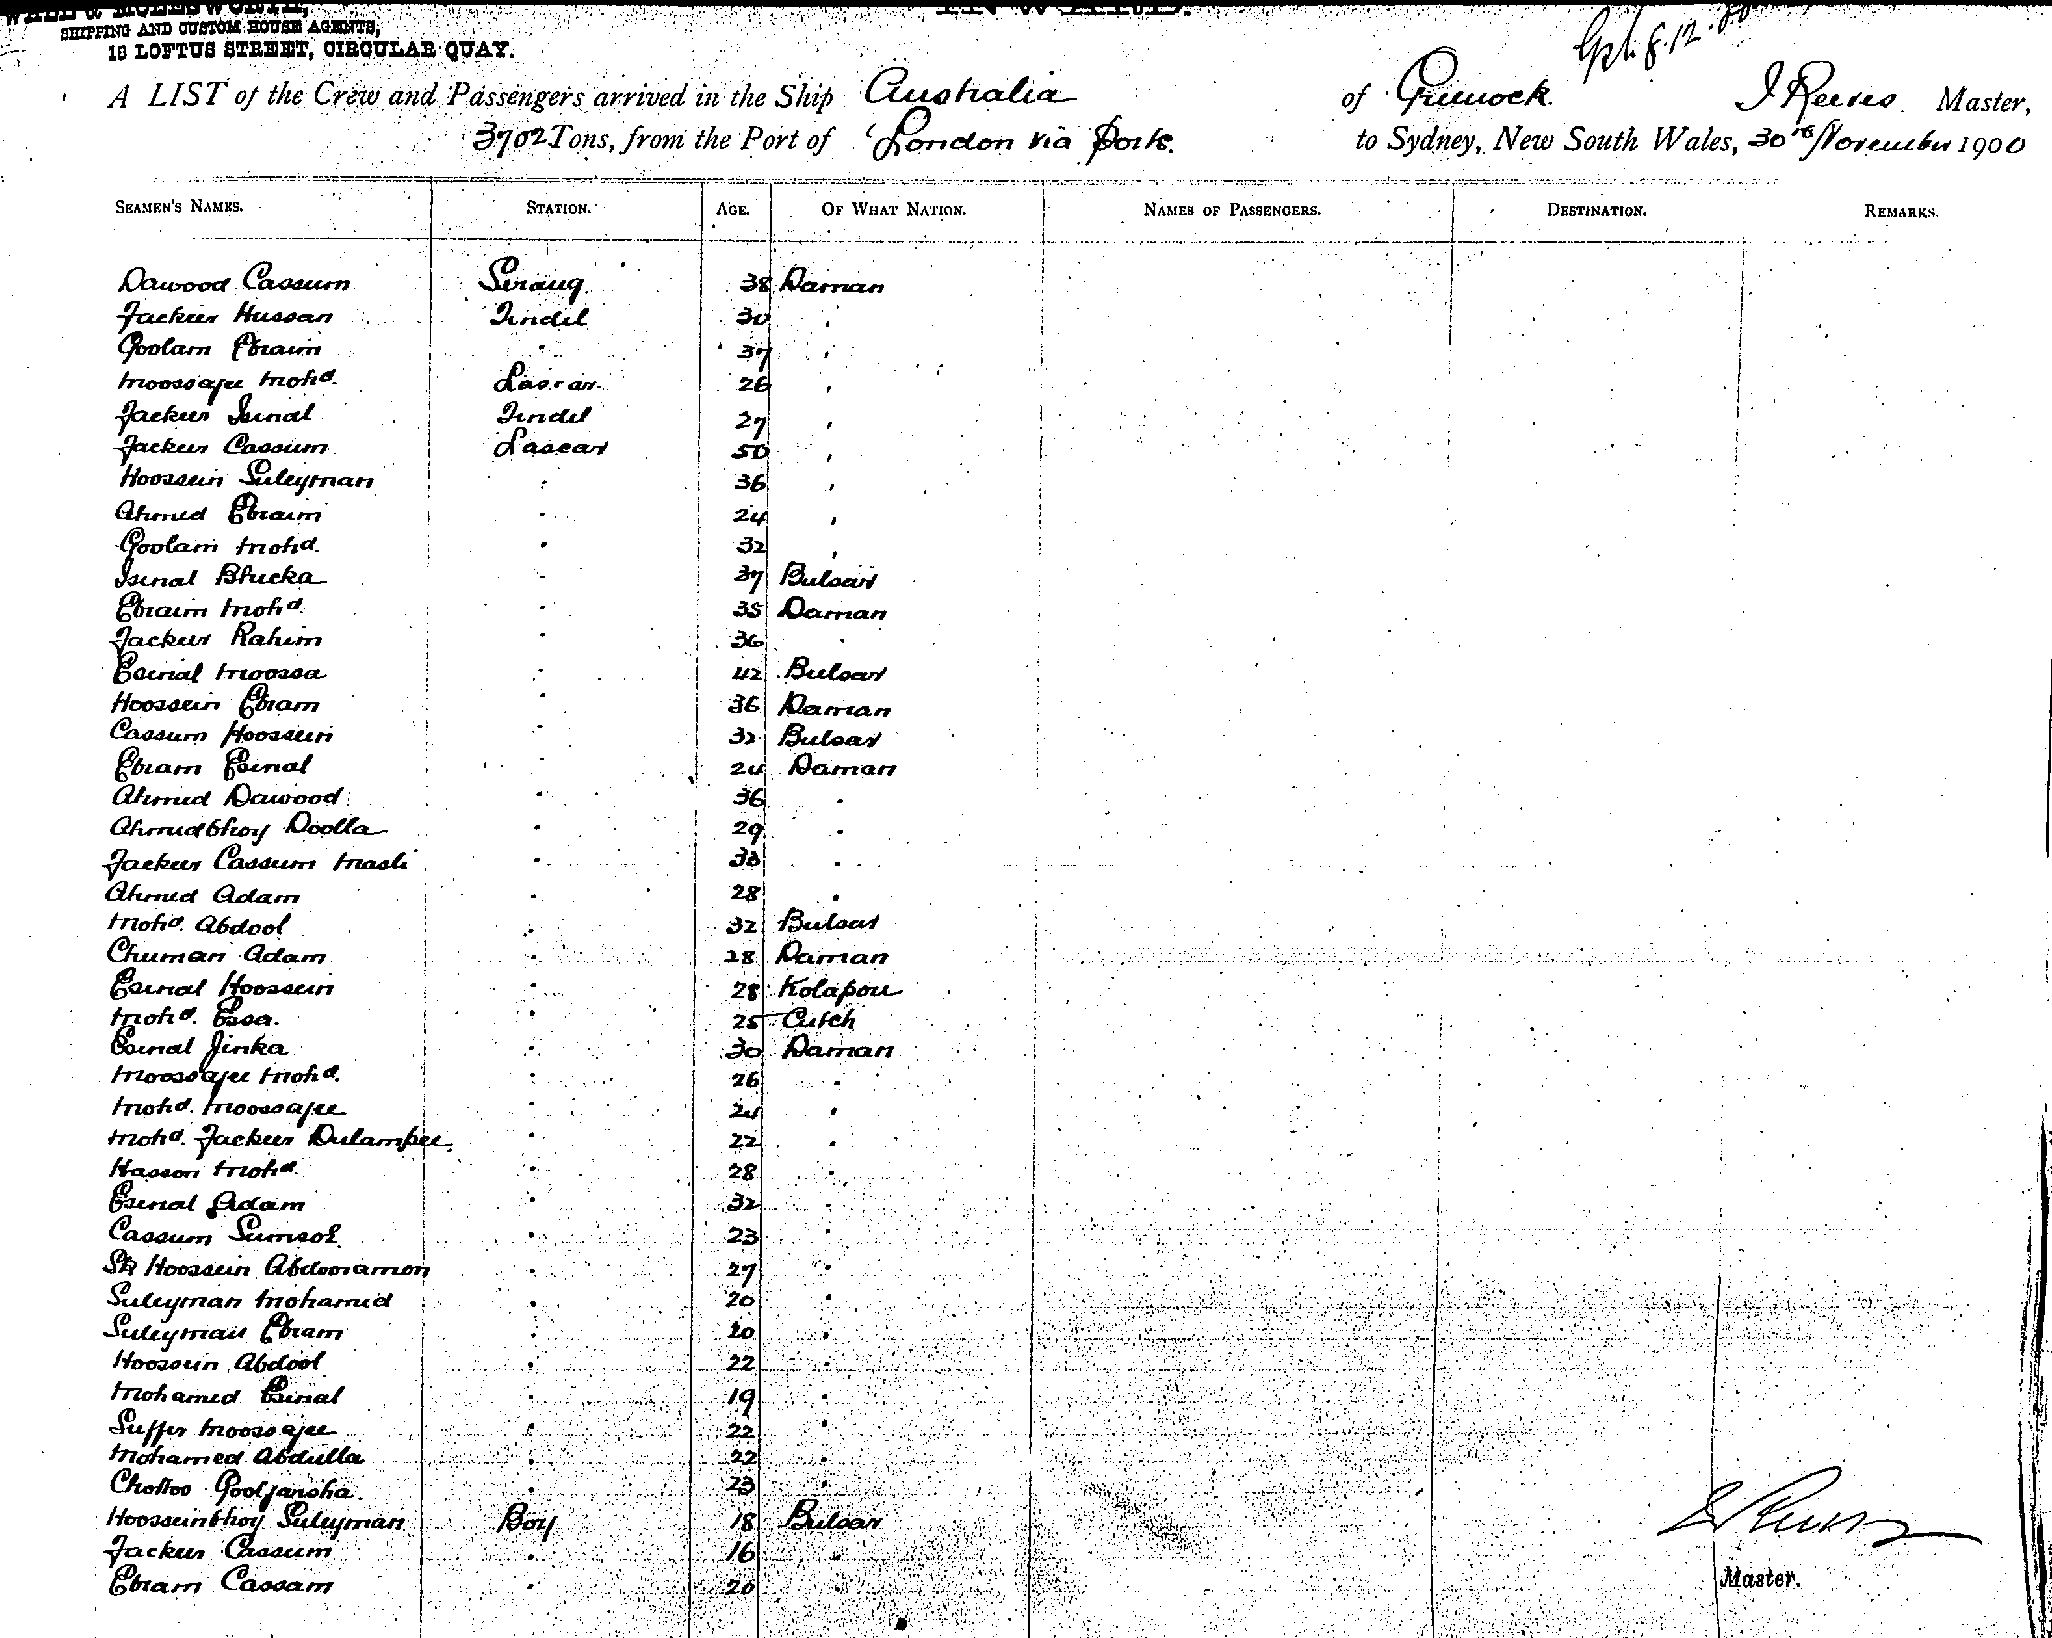 SHIPPING AND CUSTOM HOUSE AGENTS,
18 LOFTUS STREET, CIRCULAR QUAY.
INWARD.
8.12.00
A LIST of the Crew and Passengers arrived in the Ship Australia of Greenock J Reeves Master,
3702 Tons, from the Port of London via Ports. to Sydney, New South Wales, 30th November 1900
SEAMEN'S NAMES. STATION. AGE. OF WHAT NATION. NAMES OF PASSENGERS. DESTINATION. REMARKS.
Dawood Cassum Serang 38 Daman
Fackeer Hussan Tindel 30 "
Goolam Ebraim " 37 "
Moossajee Mohd. Lascar 26 "
Fackeer Isinal Tindel 27 "
Fackeer Cassum Lascar 50 "
Hoossein Suleyman " 36 "
Ahmed Ebraim " 24 "
Goolam Mohd. " 32 "
Isinal Bhicka " 37 Bulsar
Ebraim Mohd. " 35 Daman
Fackeer Rahim " 36 "
Esinal Moossa " 42 Bulsar
Hoossein Ebram " 36 Daman
Cassum Hoossein " 32 Bulsar
Ebram Esinal " 24 Daman
Ahmed Dawood " 36 "
Ahmedbhoy Doolla " 29 "
Fackeer Cassum Masti " 33 "
Ahmed Adam " 28 "
Mohd. Abdool " 32 Bulsar
Chuman Adam " 28 Daman
Esinal Hoossein " 28 Kolapou
Mohd. Essa. " 25 Cutch
Esinal Jinka " 30 Daman
Moossajee Mohd. " 26 "
Mohd. Moossajee " 24 "
Mohd. Fackeer Dulampee " 22 "
Hasson Mohd. " 28 "
Esinal Adam " 32 "
Cassum Sumsol " 23 "
Sk Hoossein Abdooramon " 27 "
Suleyman Mohamed " 20 "
Suleyman Ebram " 20 "
Hoossein Abdool " 22 "
Mohamed Esinal " 19 "
Suffer Moossajee " 22 "
Mohamed Abdulla " 22 "
Chottoo " 23 "
Hoosseinbhoy Suleyman Boy 18 Bulsar
Fackeer Cassum " 16 "
Ebram Cassam " 20 "
J Reeves
Master.